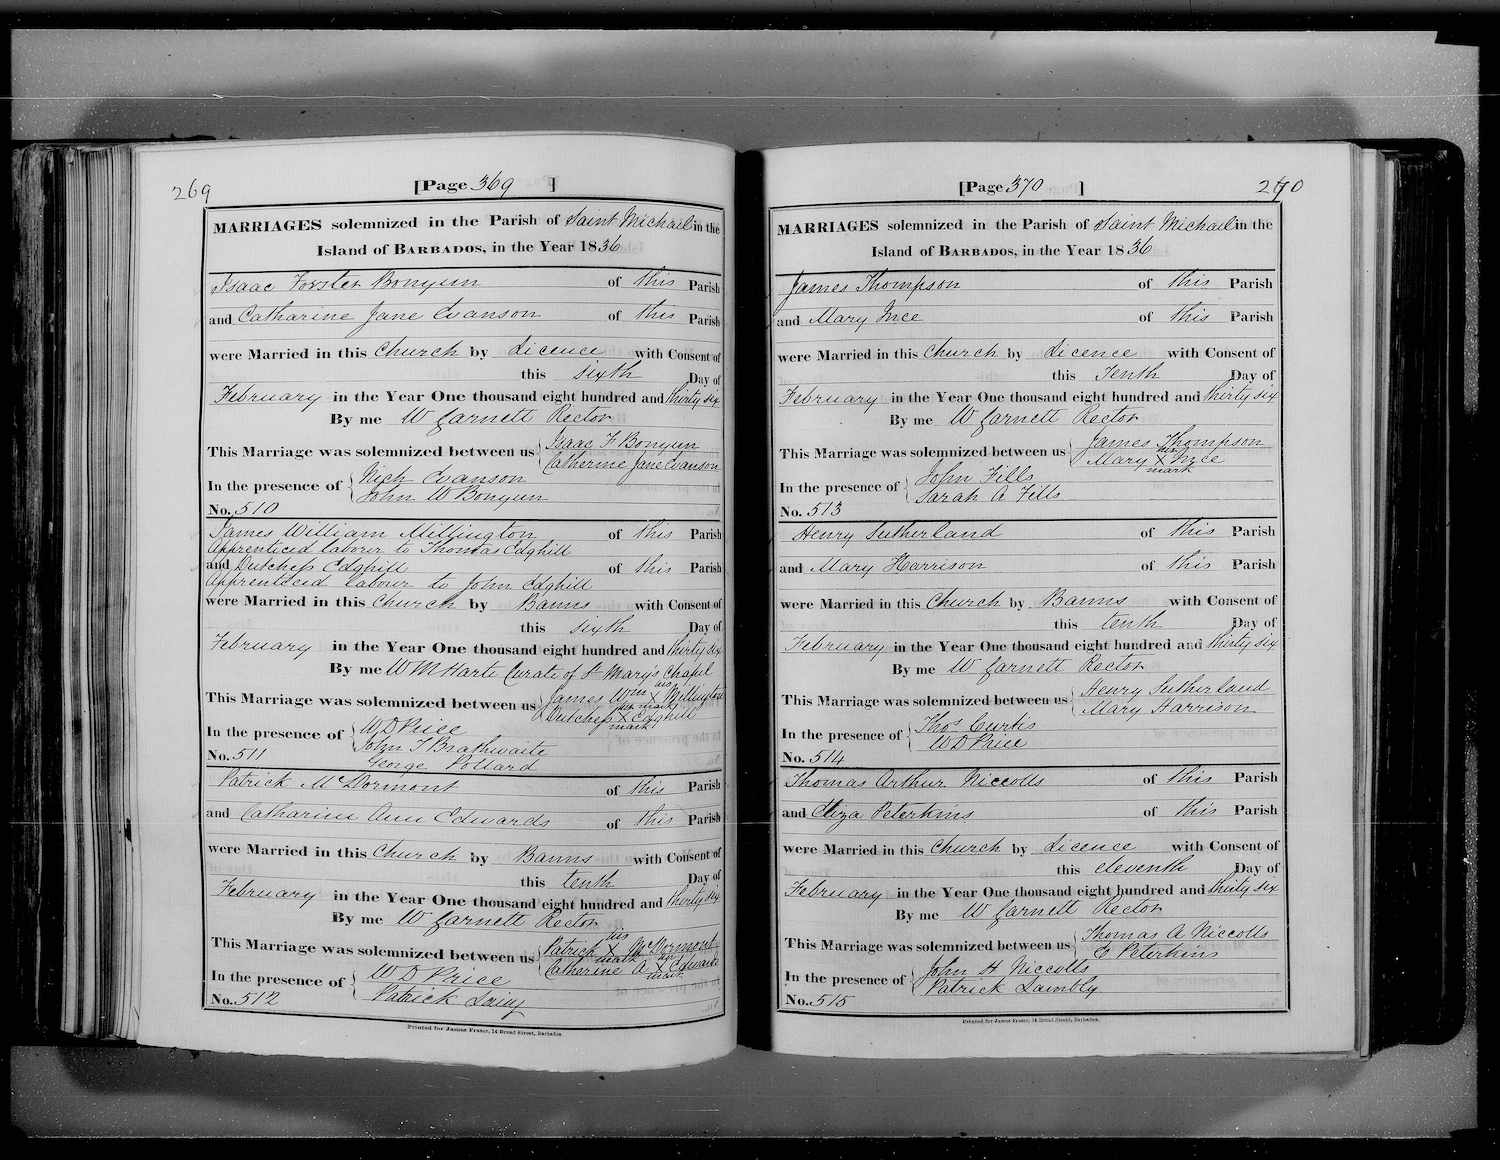 269
[Page 369 ]
MARRIAGES solemnized in the Parish of Saint Michael in the
Island of BARBADOS, in the Year 1836
Isaac Forster Bonyun of this Parish
and Catharine Jane Evanson of this Parish
were Married in this Church by Licence with Consent of
this sixth Day of
February in the Year One thousand eight hundred and thirty six
By me W Garnett Rector
This Marriage was solemnized between us { Isaac F Bonyun
Catherine Jane Evanson
In the presence of { Nich Evanson
John W Bonyun
No. 510
James William Millington of this Parish
Apprenticed laborer to Thomas Edghill
and Dutchess Edghill of this Parish
Apprenticed labour to John Edghill
were Married in this Church by Banns with Consent of
this sixth Day of
February in the Year One thousand eight hundred and thirty six
By me W M Harte Curate of St Mary's Chapel
This Marriage was solemnized between us { James Wm his X mark Millington
Dutchess her X mark Edghill
In the presence of { W D Price
John T Brathwaite
George Pollard
No. 511
Patrick McDormont of this Parish
and Catharine Ann Edwards of this Parish
were Married in this Church by Banns with Consent of
this tenth Day of
February in the Year One thousand eight hundred and thirty six
By me W Garnett Rector
This Marriage was solemnized between us { Patrick his X mark McDormont
Catherine A her X mark Edwards
In the presence of { W D Price
Patrick
No. 512
Printed for James Fraser, 14 Broad Street, Barbados.
270
[Page 370 ]
MARRIAGES solemnized in the Parish of Saint Michael in the
Island of BARBADOS, in the Year 1836
James Thompson of this Parish
and Mary Ince of this Parish
were Married in this Church by Licence with Consent of
this Tenth Day of
February in the Year One thousand eight hundred and thirty six
By me W Garnett Rector
This Marriage was solemnized between us { James Thompson
Mary her X mark Ince
In the presence of { John Fills
Sarah A Fills
No. 513
Henry Sutherland of this Parish
and Mary Harrison of this Parish
were Married in this Church by Banns with Consent of
this tenth Day of
February in the Year One thousand eight hundred and thirty six
By me W Garnett Rector
This Marriage was solemnized between us { Henry Sutherland
Mary Harrison
In the presence of { Thos Curtis
W D Price
No. 514
Thomas Arthur Niccolls of this Parish
and Eliza Peterkins of this Parish
were Married in this Church by Licence with Consent of
this eleventh Day of
February in the Year One thousand eight hundred and thirty six
By me W Garnett Rector
This Marriage was solemnized between us { Thomas A Niccolls
E Peterkins
In the presence of { John H Niccolls
Patrick Lambly
No. 515
Printed for James Fraser, 14 Broad Street, Barbados.